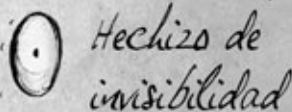 Hechizo de
invisibilidad